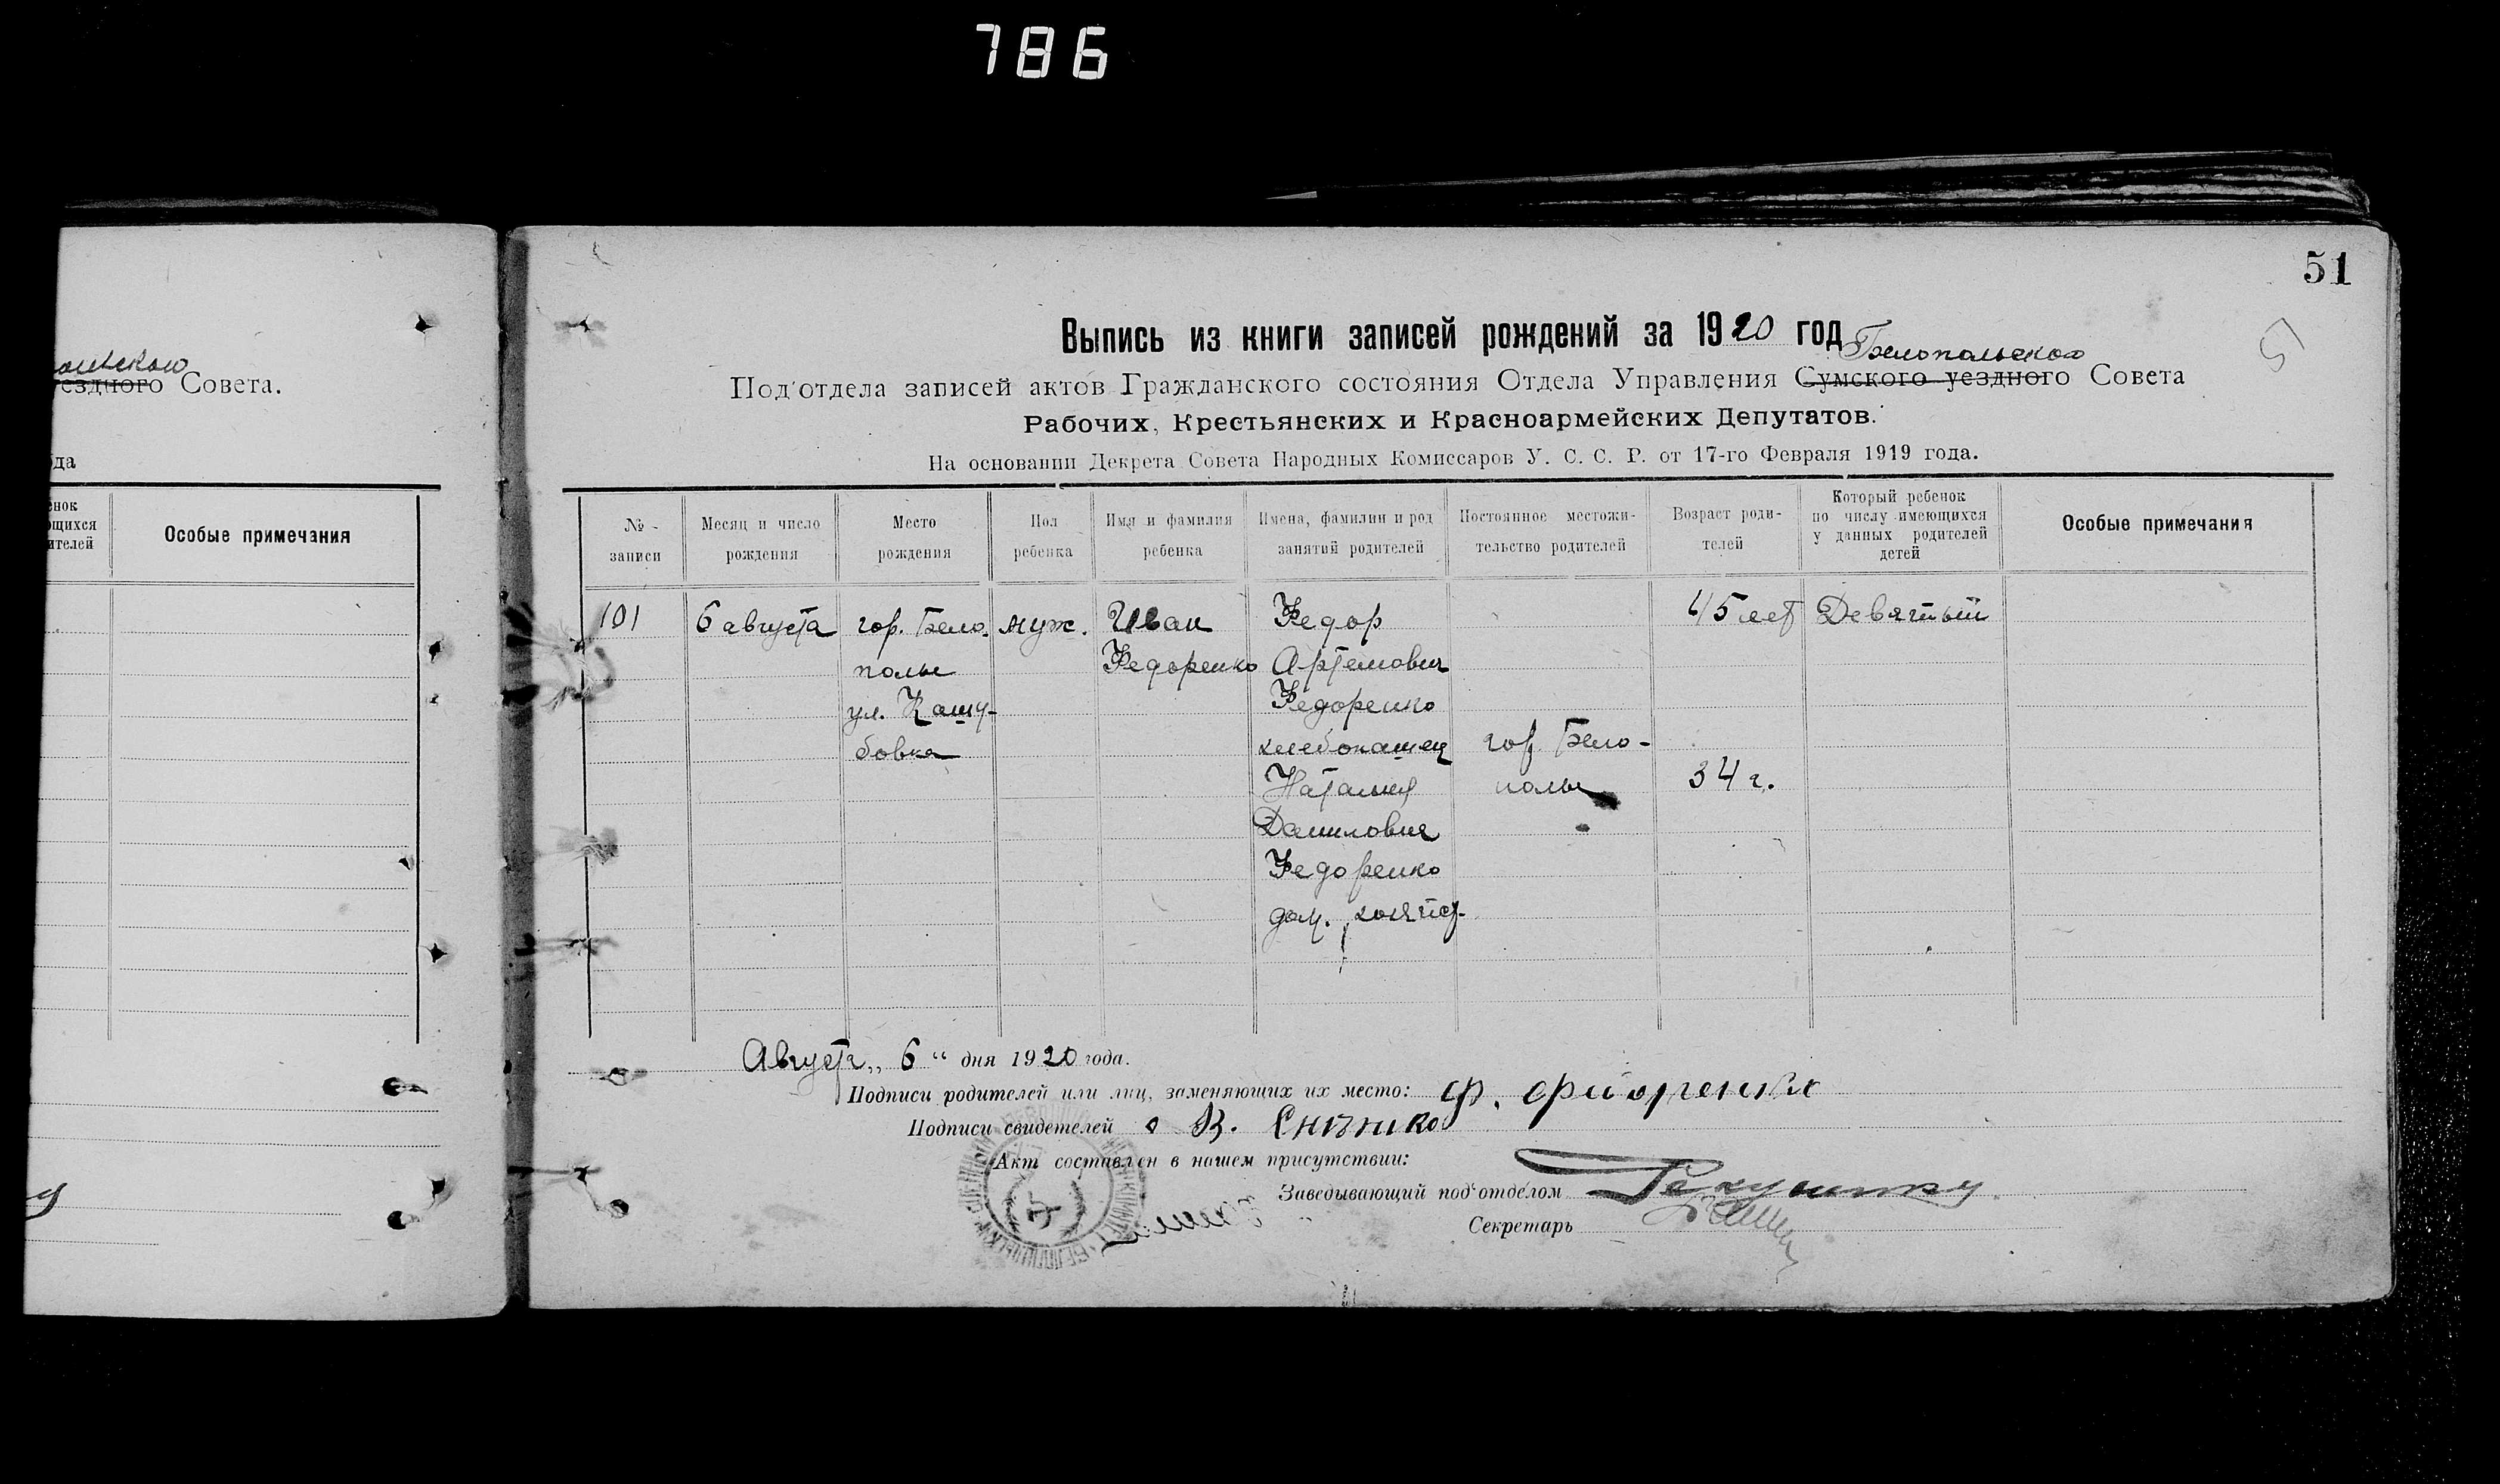 786
51
51
Совета.
Особые примечания
Выпись из книги записей рождений за 1920 год
Белопольского
Под'отдела записей актов Гражданского состояния Отдела Управления Сумского уездного Совета
Рабочих, Крестьянских и Красноармейских Депутатов.
На основании Декрета Совета Народных Комиссаров У. С. С. Р. от 17-го Февраля 1919 года.
№ записи
Месяц и число рождения
Место рождения
Пол ребенка
Имя и фамилия ребенка
Имена, фамилии и род занятий родителей
Постоянное местожительство родителей
Возраст родителей
Который ребенок по числу имеющихся у данных родителей детей
Особые примечания
101
6 августа
гор. Бело-
полье
ул. Кашу-
бовка
муж.
Иван
Федоренко
Федор
Артемович
Федоренко
хлебопашец
Наталия
Даниловна
Федоренко
дом. хозяйка
гор. Бело-
полье
45 лет
34 г.
Девятый
Августа „6“ дня 1920 года.
Подписи родителей или лиц, заменяющих их место: Ф. Федоренко
Подписи свидетелей В.
Акт составлен в нашем присутствии:
Заведывающий под'отделом
Секретарь